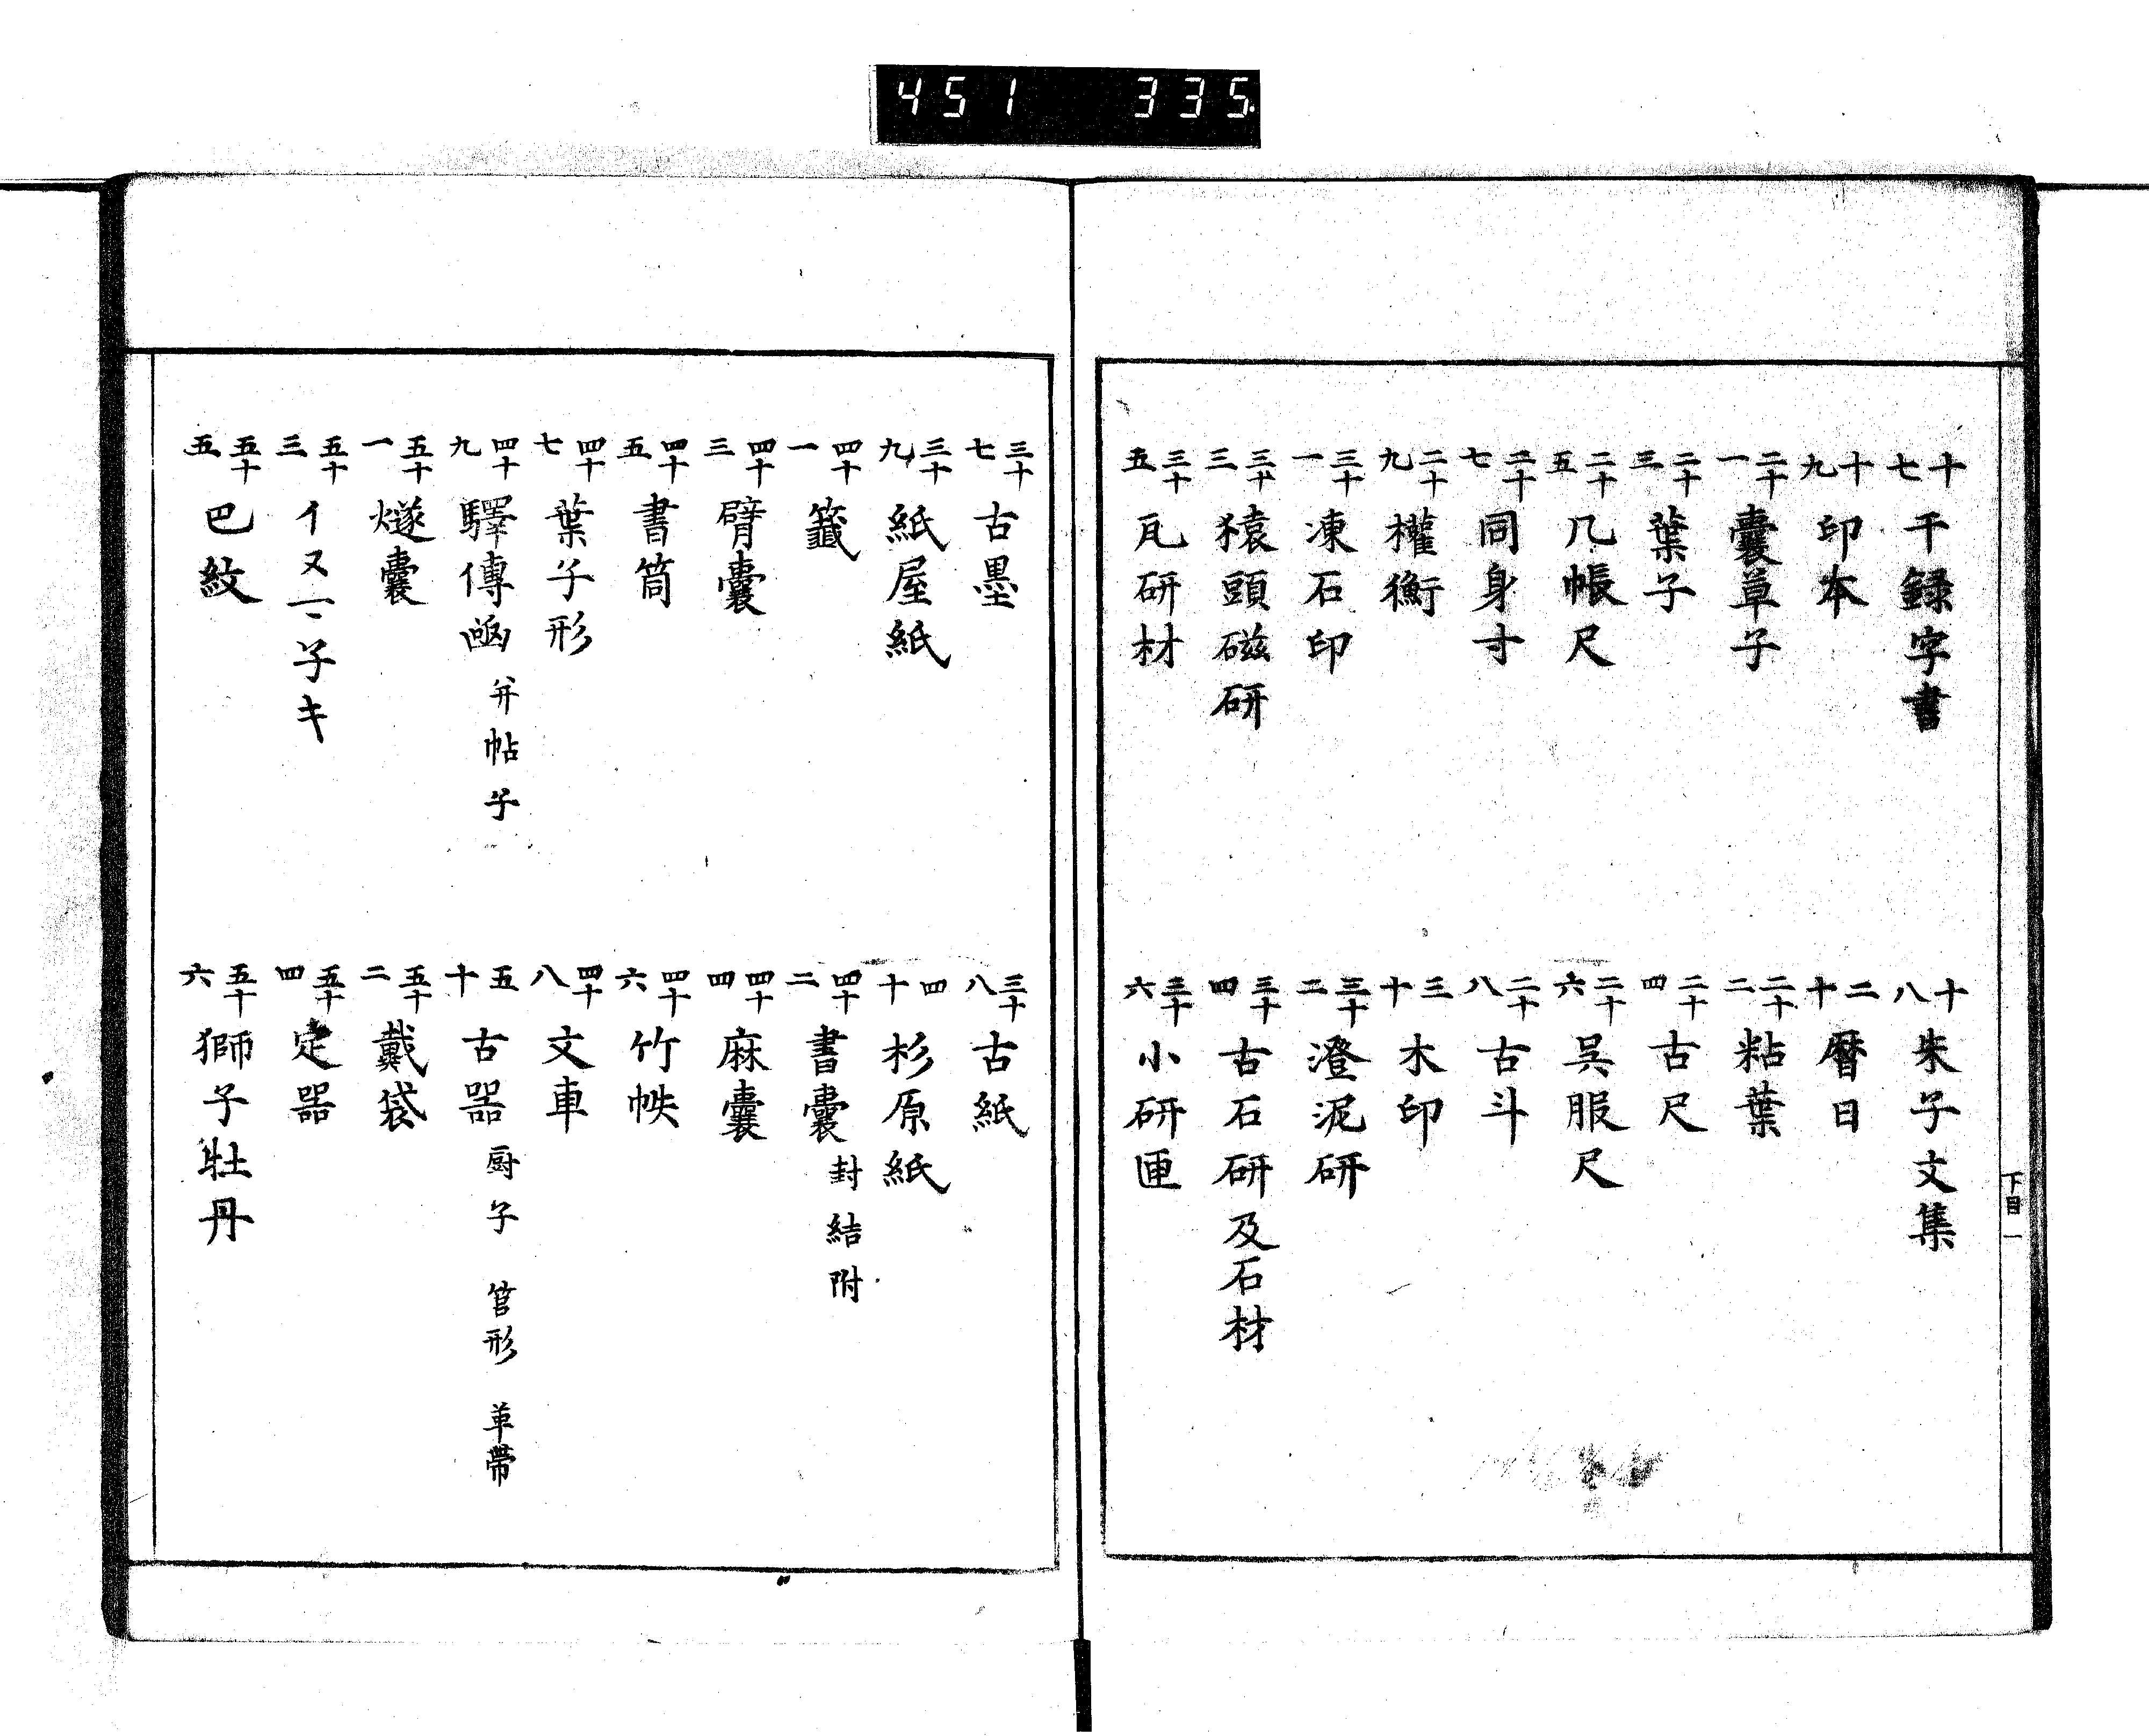 451 335
十七 干録字書
十八 朱子文集
十九 印本
二十 暦日
二十一 嚢草子
二十二 粘葉
二十三 葉子
二十四 古尺
二十五 几帳尺
二十六 呉服尺
二十七 同身寸
二十八 古斗
二十九 權衡
三十 木印
三十一 凍石印
三十二 澄泥研
三十三 猿頭磁研
三十四 古石研及石材
三十五 瓦研材
三十六 小研匣
下目 一
三十七 古墨
三十八 古紙
三十九 紙屋紙
四十 杉原紙
四十一 籤
四十二 書嚢 封結附
四十三 臂嚢
四十四 麻嚢
四十五 書筒
四十六 竹帙
四十七 葉子形
四十八 文車
四十九 驛傳凾 并帖子
五十 古器 厨子 筥形 革帶
五十一 燧嚢
五十二 戴袋
五十三 イヌマ子キ
五十四 定器
五十五 巴紋
五十六 獅子牡丹